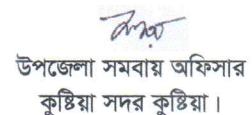 উপজেলা সমবায় অফিসার
কুষ্টিয়া সদর কুষ্টিয়া।